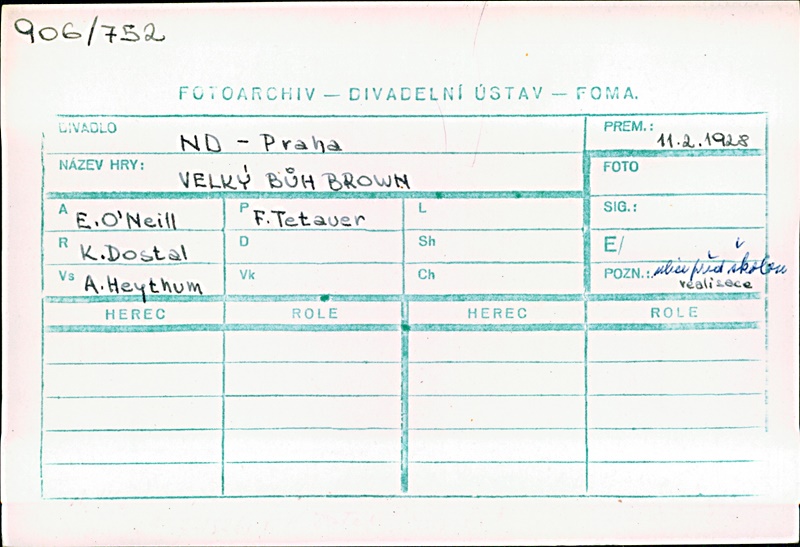 906/752
FOTOARCHIV — DIVADELNÍ ÚSTAV — FOMA.
DIVADLO ND - Praha
PREM.: 11.2.1928
NÁZEV HRY: VELKÝ BŮH BROWN
FOTO
A E. O'Neill P F. Tetauer L
SIG.:
R K. Dostal D Sh
E/
Vs A. Heythum Vk Ch
POZN.: ulice před školou
realisace
HEREC ROLE HEREC ROLE